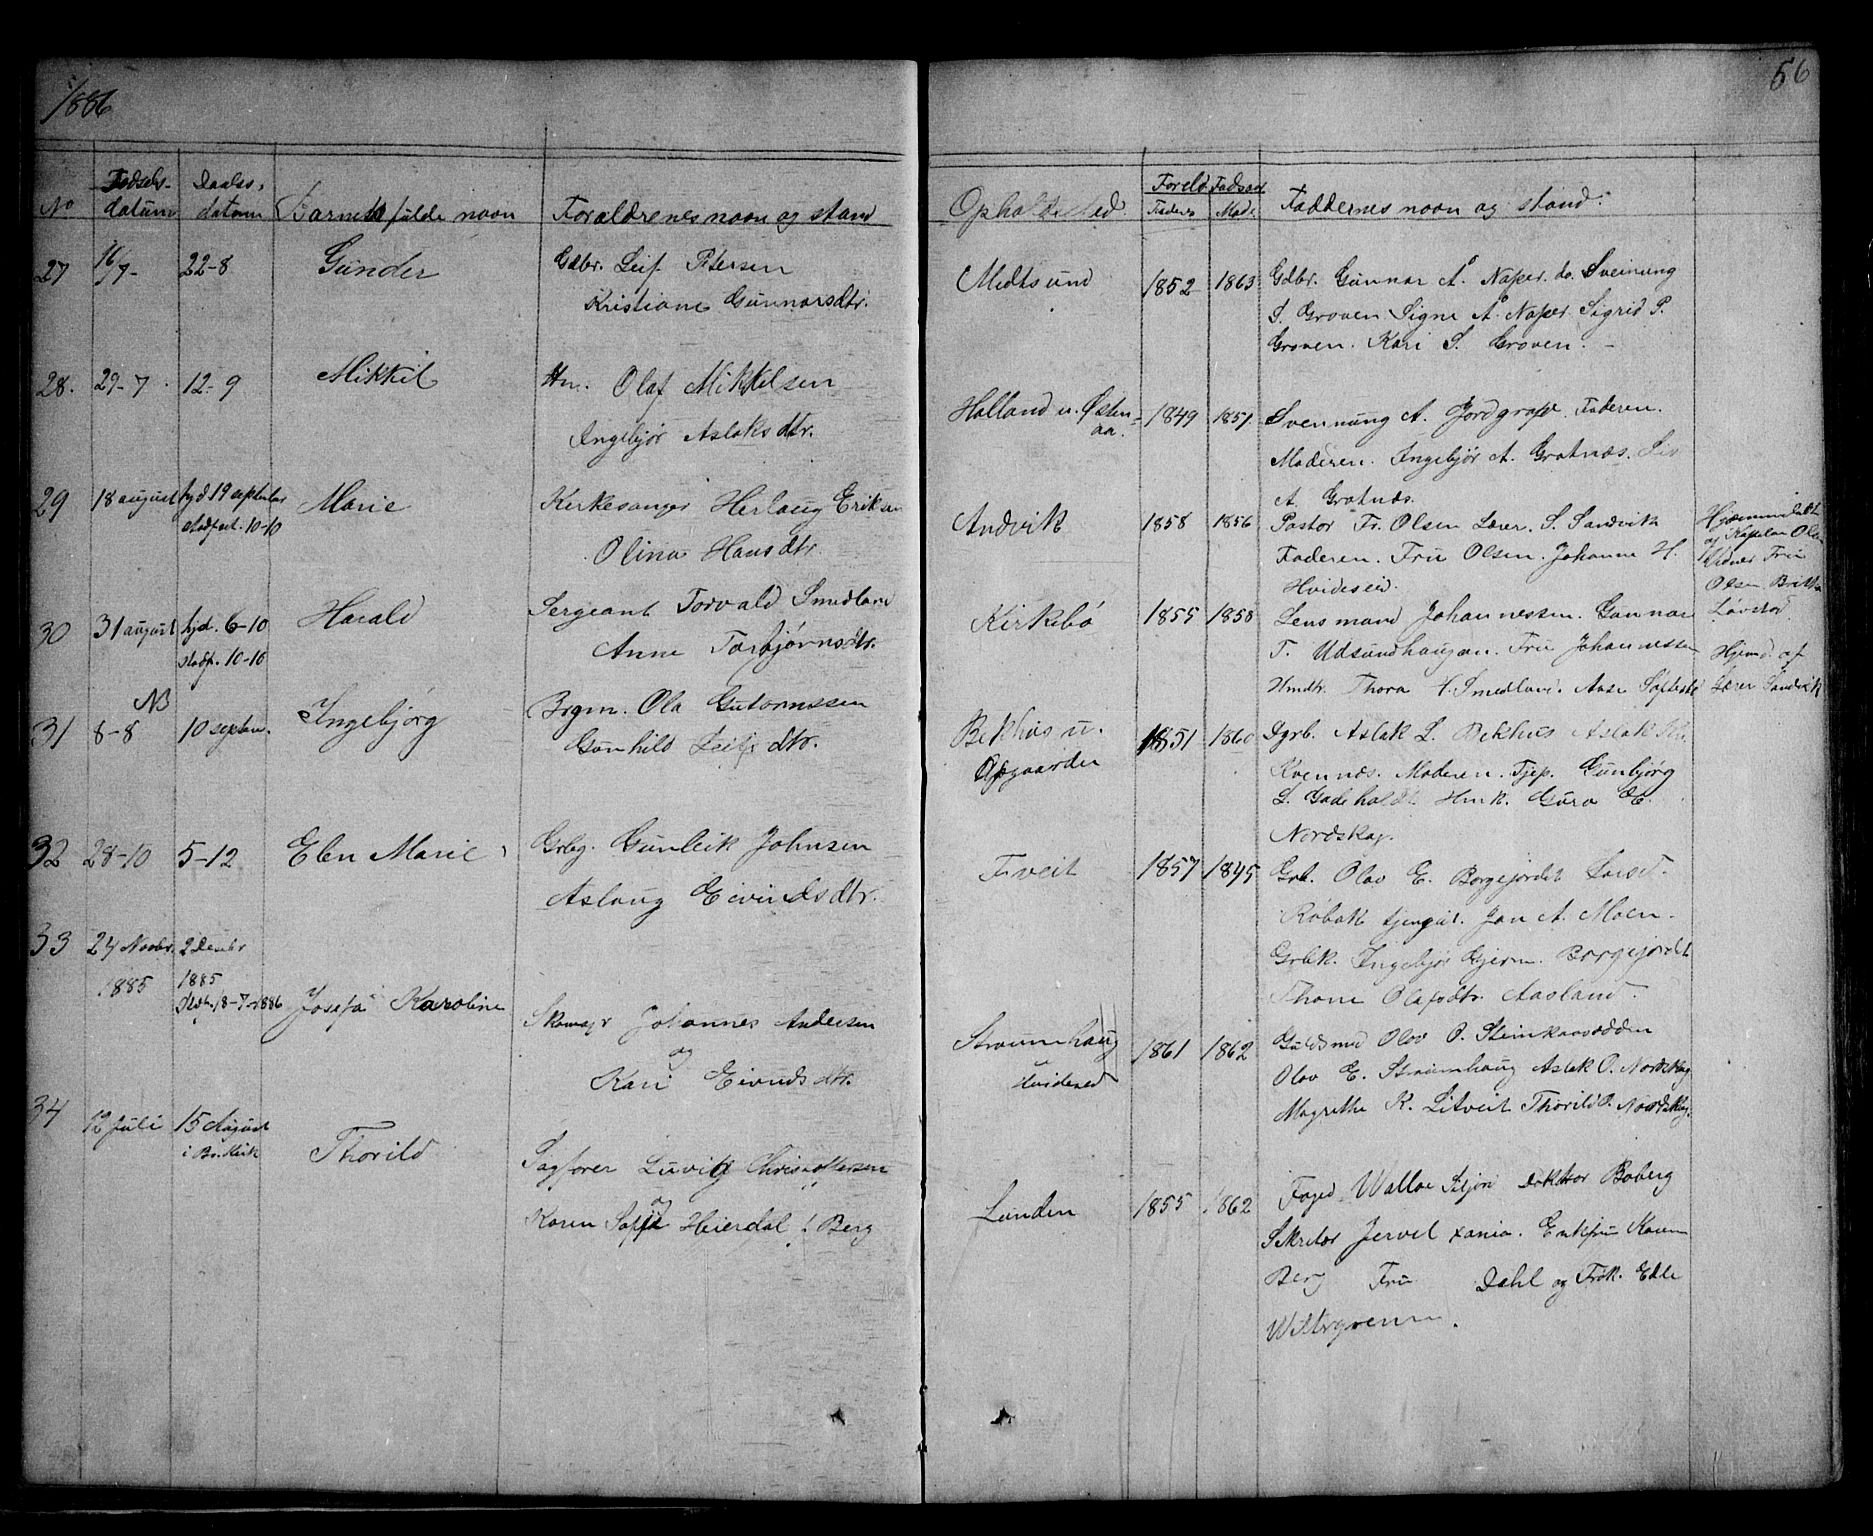 1886
56
No
Fødsels-
datum
Daabs-
datum
Barnets fulde navn
Forældrenes navn og stand
Opholdssted
Foreld. Fødsaar
Faders
Mod.
Faddernes navn og stand.
27
16/7-
22-8
Gunder
Gdbr. Leif Petersen
Kristiane Gunnarsdtr.
Midtsund
1852
1863
Gdbr. Gunnar A. Naper. do. Sveinung
S. Groven Signe A. Naper Sigrid P.
Groven. Kari S. Groven. -
28.
29-7
12-9
Mikkil
Hm. Olaf Mikkelsen
Ingebjør Aslaksdtr.
Halland u. Østen-
aa.
1849
1851
Svennung A. Jordgrave. Faderen.
Moderen. Ingebjør A. Grotnæs. Liv
A. Grotnæs.
29
18 august
hjd 19 septeber
stadfest. 10-10
Marie
Kirkesanger Herlaug Eriksen
Olina Hansdtr.
Andvik
1858
1856
Pastor Fr. Olsen Lærer. S. Sandvik
Faderen. Fru Olsen. Johanne H.
Hvideseid.
Hjemmedøbt
af Kapelan Olsen
Vidner Fru
Olsen Britha
Løvstod
30
31 august
hjd. 6-10
stadf. 10-10
Harald
Sergeant Torvald Smedland
Anne Torbjørnsdtr.
Kirkebø
1855
1858
Lensmand Johannessen. Gunnar
T. Udsundhaugen. Fru Johannessen
Hmdtr. Thora H. Smedland. Aase
Hjemd. af
Lærer Sandvik
NB
31
8-8
10 septem.
Ingebjørg
Brgm. Ola Gutormssen
Gunhild Leifsdtr.
Bekhus u.
Opgaarden
1851
1860
Dgrb. Aslak L. Bekhus Aslak
Kvennæs. Moderen. Tjep. Gunbjørg
L. Gadeholdt. Hmk. Guro E.
Nordskog.
32
28-10
5-12
Elen Marie
Grbg. Gunleik Johnsen
Aslaug Eivindsdtr.
Tveit
1857
1845
Grb. Olav E. Borgejordet
Robak tjengut. Jon A. Moen.
Grbk. Ingebjør Gjerm. Borgejordet
Thone Olafsdtr. Aasland.
33
24 Novbr.
1885
2 Decmbr
1885
18-7-1886
Josefa Karoline
Skomagr Johannes Andersen
og
Kari Eivindsdtr.
Straumhaug
u
Hvideseid
1861
1862
Guldsmed Olov O. Steinkaasodden
Olav E. Straumhaug Aslak O. Nordskog
Magrethe K. Litveit Thorild O. Nordskog.
34
12 Juli
15 August
i
Thorild
Sagfører Luvig Christoffersen
og
Karen Sofie Heierdal f. Berg
Lunden
1855
1862
Foged Walløe Seljord Doktor Boberg
Sekretær Jervel xania. Enkefru Karen
Berg Fru Dahl og Frøk. Edle